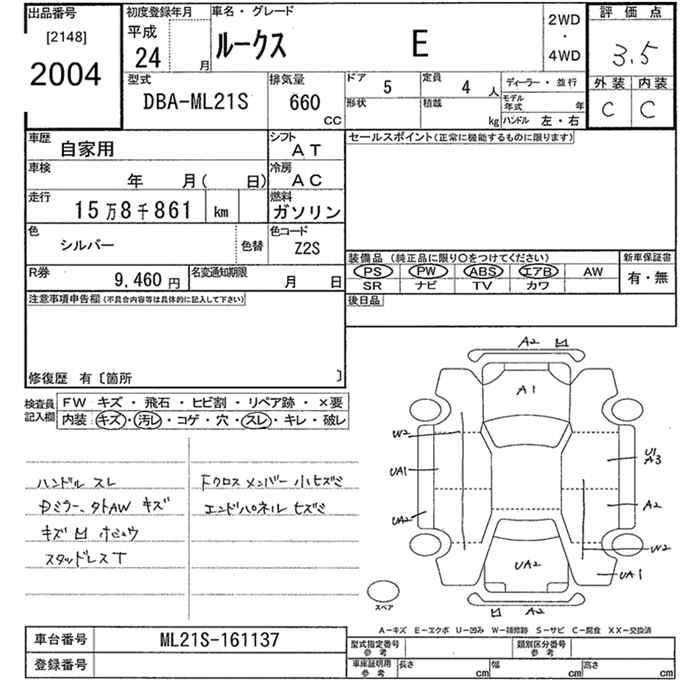 出品番号
[2148]
2004
初度登録年月
平成
24 月
車名・グレード
ルークス E
2WD
・
4WD
評価点
3.5
外装 内装
C C
型式
DBA-ML21S
排気量
660
CC
ドア
5
定員
4 人
形状
積載
kg
ディーラー・並行
モデル年式 年
ハンドル 左・右
車歴
自家用
シフト
AT
車検
年 月( 日)
冷房
AC
走行
15万8千861 km
燃料
ガソリン
色
シルバー
色替
色コード
Z2S
R券
9,460 円
名変通知期限
月 日
セールスポイント(正常に機能するものに限ります)
装備品 (純正品に限り〇をつけてください)
PS PW ABS エアB AW
SR ナビ TV カワ
新車保証書
有・無
後日品
注意事項申告欄(不具合内容等は具体的に記入して下さい)
修復歴 有〔箇所 〕
検査員記入欄
FW キズ・飛石・ヒビ割・リペア跡・×要
内装:キズ・汚レ・コゲ・穴・スレ・キレ・破レ
ハンドル スレ
Dミラー、タトAW キズ
キズ 凹 ホシュウ
スタッドレスT
Fクロスメンバー小ヒズミ
エンドパネル ヒズミ
A2 凹
A1
W2
UA1
UA2
U1
A3
A2
W2
UA1
UA2
凹 A2
スペア
A-キズ E-エクボ U-凹み W-補修跡 S-サビ C-腐食 XX-交換済
車台番号
ML21S-161137
登録番号
型式指定番号
参考
類別区分番号
参考
車庫証明用
参考
長さ cm
幅 cm
高さ cm